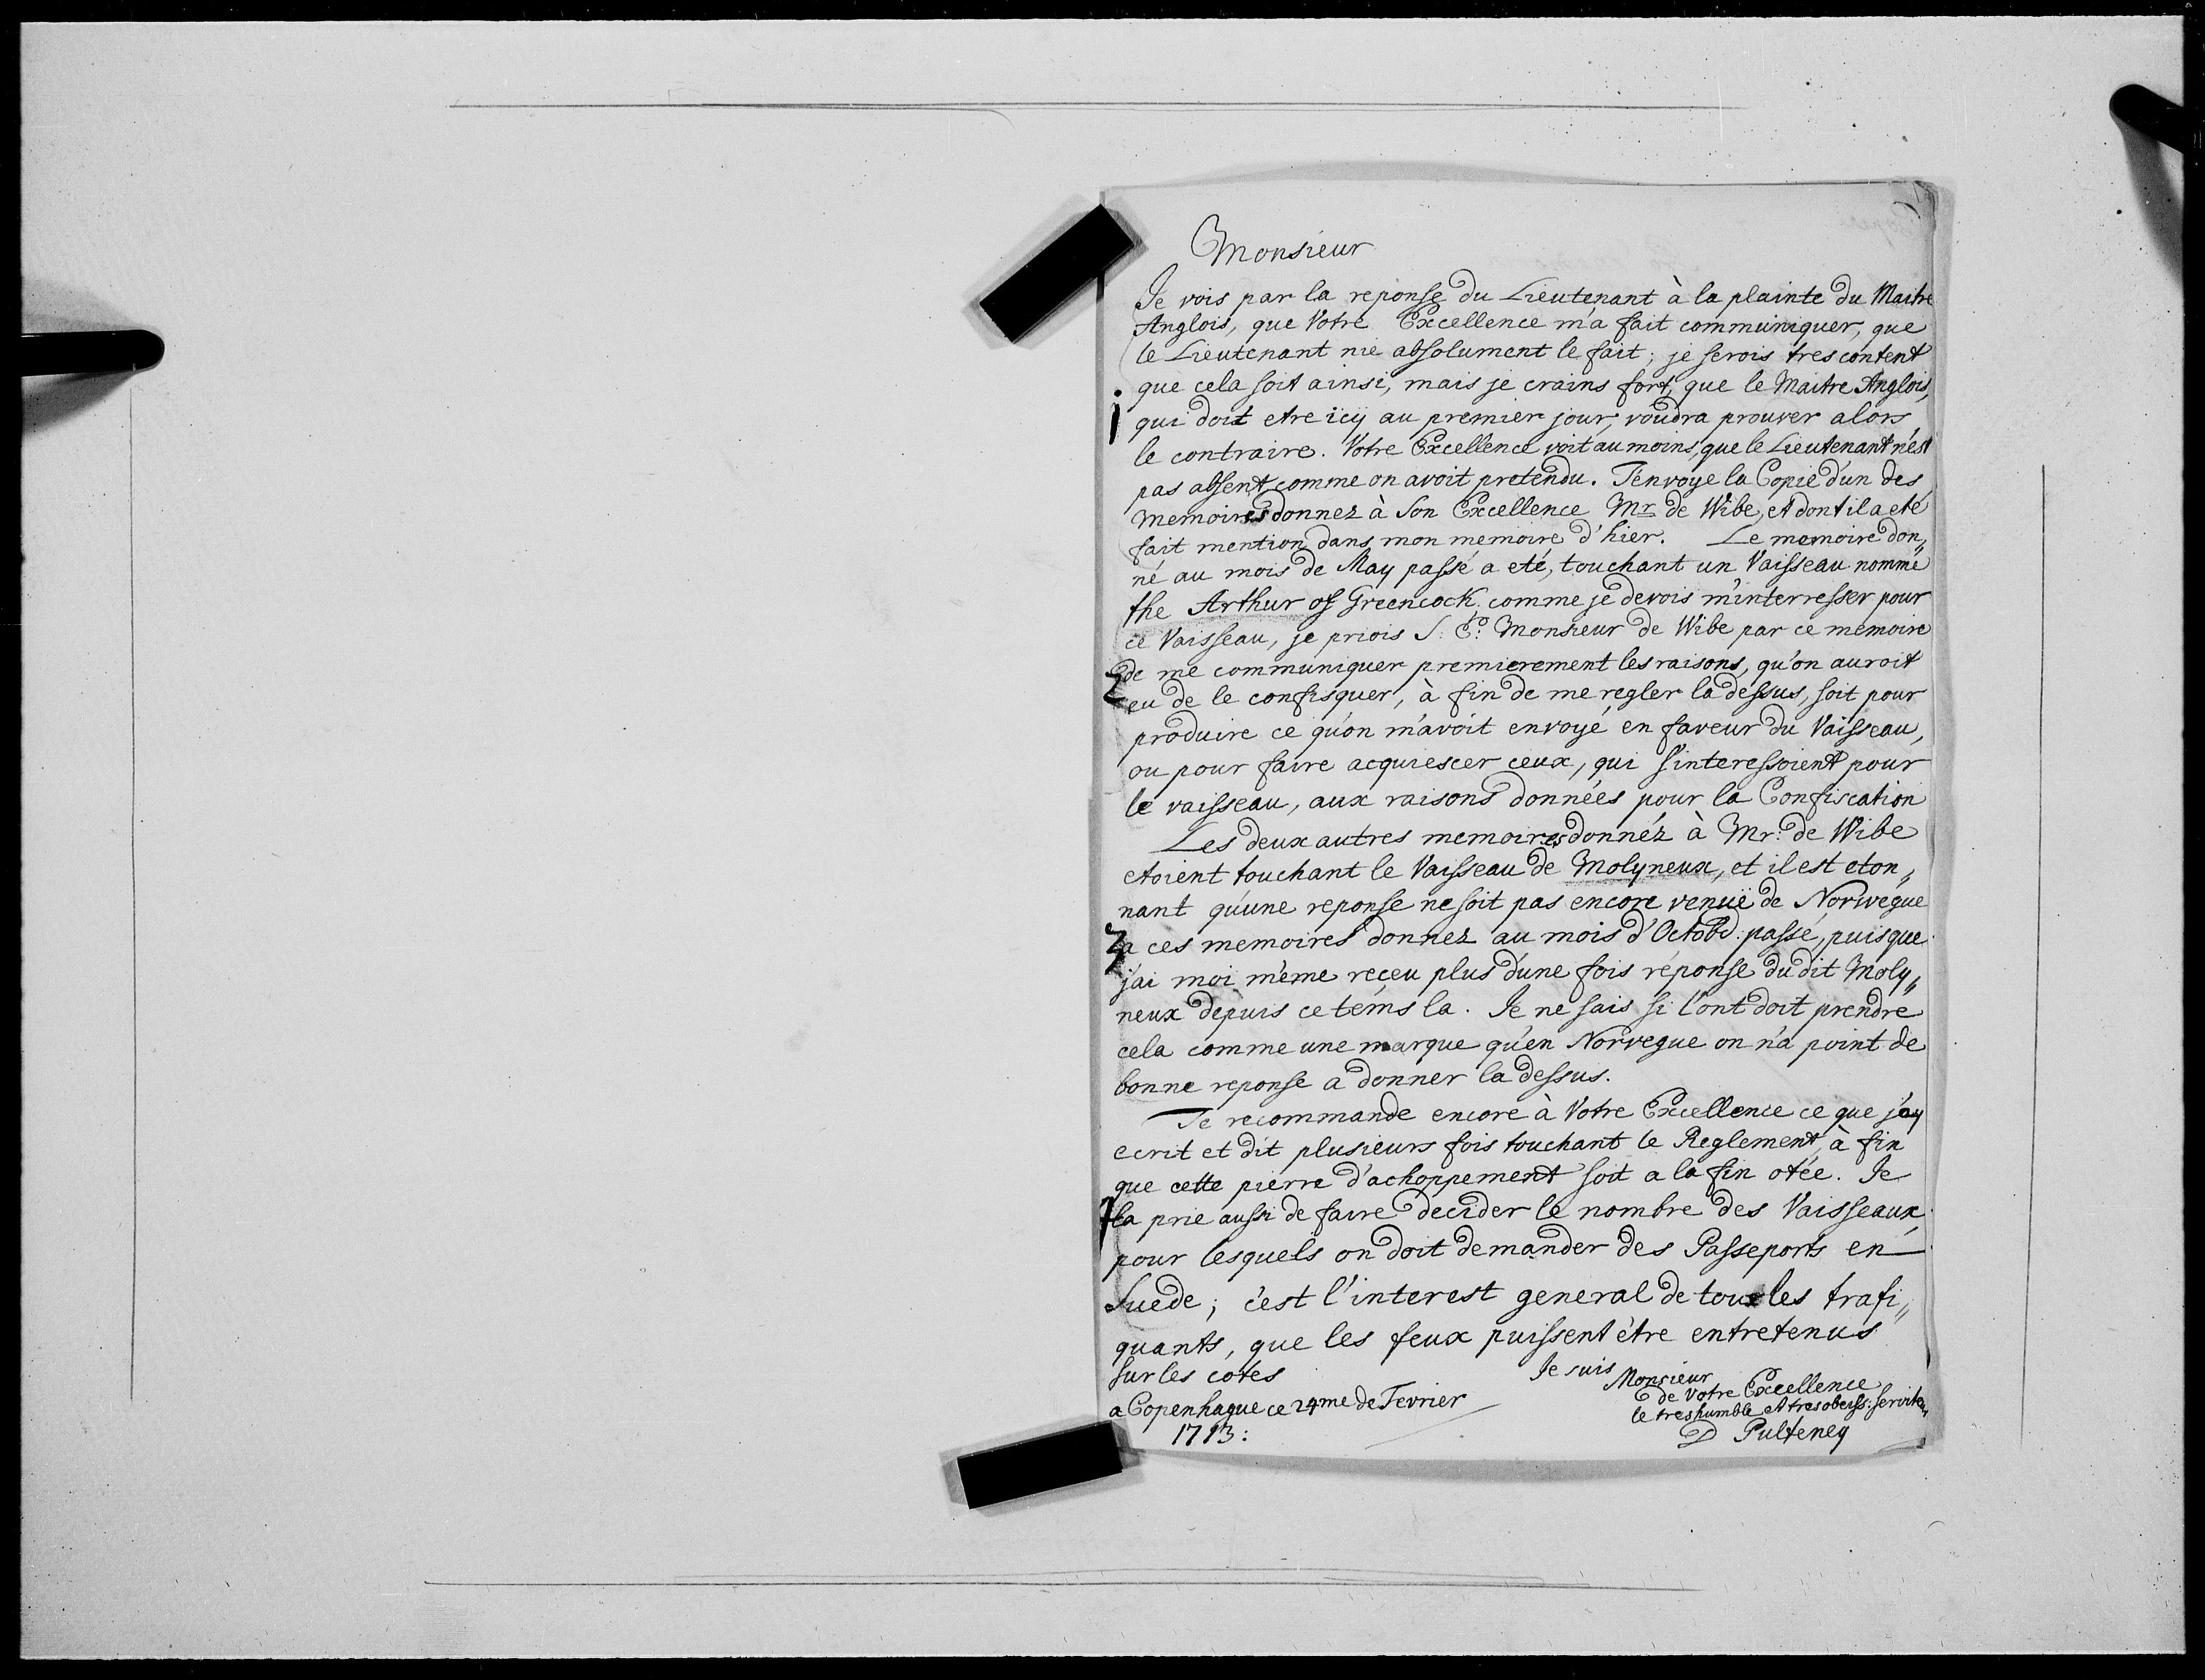 Monsieur
Je vois par la reponse du Lieutenant à la plainte du Maitre
Anglois, que Votre Excellence m'a fait communiquer, que
le Lieutenant nie absolument le fait; je serois tres content
que cela soit ainsi, mais je crains fort, que le Maitre Anglois,
1 qui doit etre icy au premier jour, voudra prouver alors
le contraire. Votre Excellence voit au moins, que le Lieutenant n'est
pas absent, comme on avoit pretendu. J'envoye la Copie d'un des
memoires donnez à Son Excellence Mr de Wibe, et dont il a eté
fait mention dans mon memoire d'hier. Le memoire don„
né au mois de May passé a eté, touchant un Vaisseau nommé
the Arthur of Greencock. comme je devois m'interresser pour
ce Vaisseau, je priois S: E: Monsieur de Wibe par ce memoire
2 de me communiquer premierement les raisons, qu'on auroit
eu de le confisquer, à fin de me regler la dessus, soit pour
produire ce qu'on m'avoit envoyé en faveur du Vaisseau,
ou pour faire acquiescer ceux, qui s'interessoient pour
le vaisseau, aux raisons données pour la Confiscation
Les deux autres memoires donnéz à Mr. de Wibe
etoient touchant le Vaisseau de Molyneux, et il est eton„
nant qu'une reponse ne soit pas encore venuë de Norwegue
3 a ces memoires donnez au mois d'Octob: passé, puisque
j'ai moi même reçeu plus d'une fois réponse du dit Moly„
neux depuis ce tems la. Je ne sais si l'ont doit prendre
cela comme une marque qu'en Norvegue on n'a point de
bonne reponse a donner la dessus.
Je recommande encore à Votre Excellence ce que j'ay
ecrit et dit plusieurs fois touchant le Reglement, à fin
que cette pierre d'achoppement soit a la fin otée. Je
la prie aussi de faire decider le nombre des Vaisseaux,
pour lesquels on doit demander des Passeports en
Suede; c'est l'interest general de tous les trafi„
quants, que les feux puissent être entretenus
sur les côtes Je suis
Monsieur
de Votre Excellence
a Copenhague ce 24me de Fevrier le tres humble et tres obeiss: servite
1713: D Pulteney